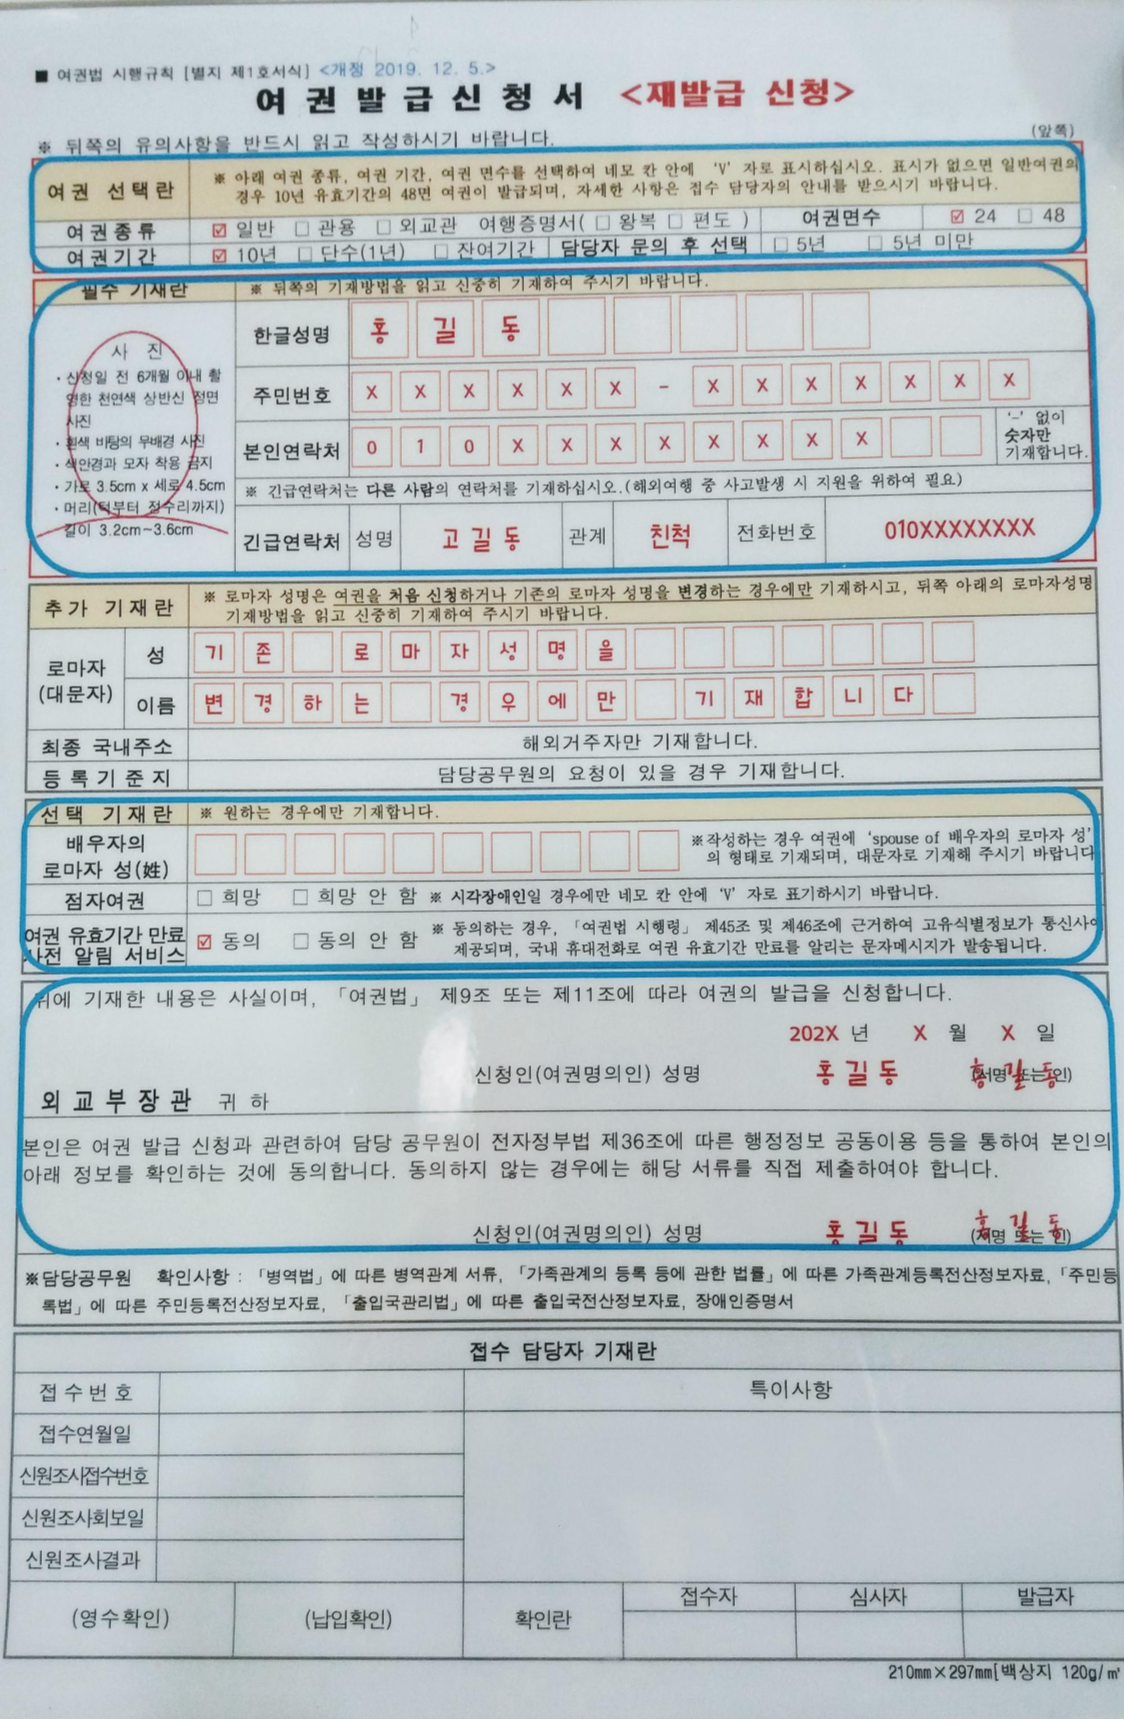 ■ 여권법 시행규칙 [별지 제1호서식] <개정 2019. 12. 5.>
여권발급신청서 <재발급 신청>
※ 뒤쪽의 유의사항을 반드시 읽고 작성하시기 바랍니다. (앞쪽)
여권 선택란 ※ 아래 여권 종류, 여권 기간, 여권 면수를 선택하여 네모 칸 안에 ‘V’ 자로 표시하십시오. 표시가 없으면 일반여권의
경우 10년 유효기간의 48면 여권이 발급되며, 자세한 사항은 접수 담당자의 안내를 받으시기 바랍니다.
여권종류 ☑ 일반 □ 관용 □ 외교관 여행증명서( □ 왕복 □ 편도 ) 여권면수 ☑ 24 □ 48
여권기간 ☑ 10년 □ 단수(1년) □ 잔여기간 담당자 문의 후 선택 □ 5년 □ 5년 미만
필수 기재란 ※ 뒤쪽의 기재방법을 읽고 신중히 기재하여 주시기 바랍니다.
사 진
· 신청일 전 6개월 이내 촬
영한 천연색 상반신 정면
사진
· 흰색 바탕의 무배경 사진
· 색안경과 모자 착용 금지
· 가로 3.5cm x 세로 4.5cm
· 머리(턱부터 정수리까지)
길이 3.2cm~3.6cm
한글성명 홍 길 동
주민번호 X X X X X X - X X X X X X X
본인연락처 0 1 0 X X X X X X X X
‘-’ 없이
숫자만
기재합니다.
※ 긴급연락처는 다른 사람의 연락처를 기재하십시오.(해외여행 중 사고발생 시 지원을 위하여 필요)
긴급연락처 성명 고길동 관계 친척 전화번호 010XXXXXXXX
추가 기재란 ※ 로마자 성명은 여권을 처음 신청하거나 기존의 로마자 성명을 변경하는 경우에만 기재하시고, 뒤쪽 아래의 로마자성명
기재방법을 읽고 신중히 기재하여 주시기 바랍니다.
로마자
(대문자)
성 기 존 로 마 자 성 명 을
이름 변 경 하 는 경 우 에 만 기 재 합 니 다
최종 국내주소 해외거주자만 기재합니다.
등록기준지 담당공무원의 요청이 있을 경우 기재합니다.
선택 기재란 ※ 원하는 경우에만 기재합니다.
배우자의
로마자 성(姓)
※작성하는 경우 여권에 ‘spouse of 배우자의 로마자 성’
의 형태로 기재되며, 대문자로 기재해 주시기 바랍니다
점자여권 □ 희망 □ 희망 안 함 ※ 시각장애인일 경우에만 네모 칸 안에 ‘V’ 자로 표기하시기 바랍니다.
여권 유효기간 만료
사전 알림 서비스
☑ 동의 □ 동의 안 함
※ 동의하는 경우, 「여권법 시행령」 제45조 및 제46조에 근거하여 고유식별정보가 통신사에
제공되며, 국내 휴대전화로 여권 유효기간 만료를 알리는 문자메시지가 발송됩니다.
위에 기재한 내용은 사실이며, 「여권법」 제9조 또는 제11조에 따라 여권의 발급을 신청합니다.
202X 년 X 월 X 일
신청인(여권명의인) 성명 홍길동 홍길동 (서명 또는 인)
외교부장관 귀하
본인은 여권 발급 신청과 관련하여 담당 공무원이 전자정부법 제36조에 따른 행정정보 공동이용 등을 통하여 본인의
아래 정보를 확인하는 것에 동의합니다. 동의하지 않는 경우에는 해당 서류를 직접 제출하여야 합니다.
신청인(여권명의인) 성명 홍길동 홍길동 (서명 또는 인)
※담당공무원 확인사항 : 「병역법」에 따른 병역관계 서류, 「가족관계의 등록 등에 관한 법률」에 따른 가족관계등록전산정보자료, 「주민등
록법」에 따른 주민등록전산정보자료, 「출입국관리법」에 따른 출입국전산정보자료, 장애인증명서
접수 담당자 기재란
접수번호 특이사항
접수연월일
신원조사접수번호
신원조사회보일
신원조사결과
(영수확인) (납입확인) 확인란 접수자 심사자 발급자
210mm×297mm[백상지 120g/㎡